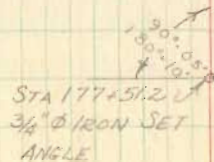 90°-05'
180°-10'
STA 177+51.2
3/4" Ø IRON SET
ANGLE